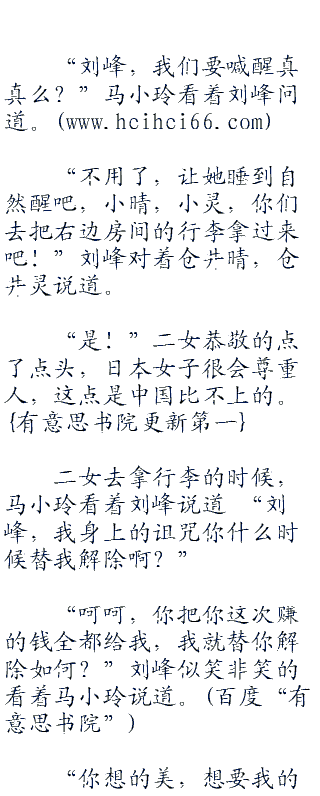 “刘峰，我们要喊醒真
真么？”马小玲看着刘峰问
道。(www.hcihci66.com)
“不用了，让她睡到自
然醒吧，小晴，小灵，你们
去把右边房间的行李拿过来
吧！”刘峰对着仓井晴，仓
井灵说道。
“是！”二女恭敬的点
了点头，日本女子很会尊重
人，这点是中国比不上的。
{有意思书院更新第一}
二女去拿行李的时候，
马小玲看着刘峰说道 “刘
峰，我身上的诅咒你什么时
候替我解除啊？”
“呵呵，你把你这次赚
的钱全都给我，我就替你解
除如何？”刘峰似笑非笑的
看着马小玲说道。(百度“有
意思书院”)
“你想的美，想要我的